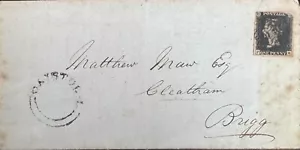 POSTAGE
ONE PENNY
Matthew Maw Esq
Cleatham
Brigg